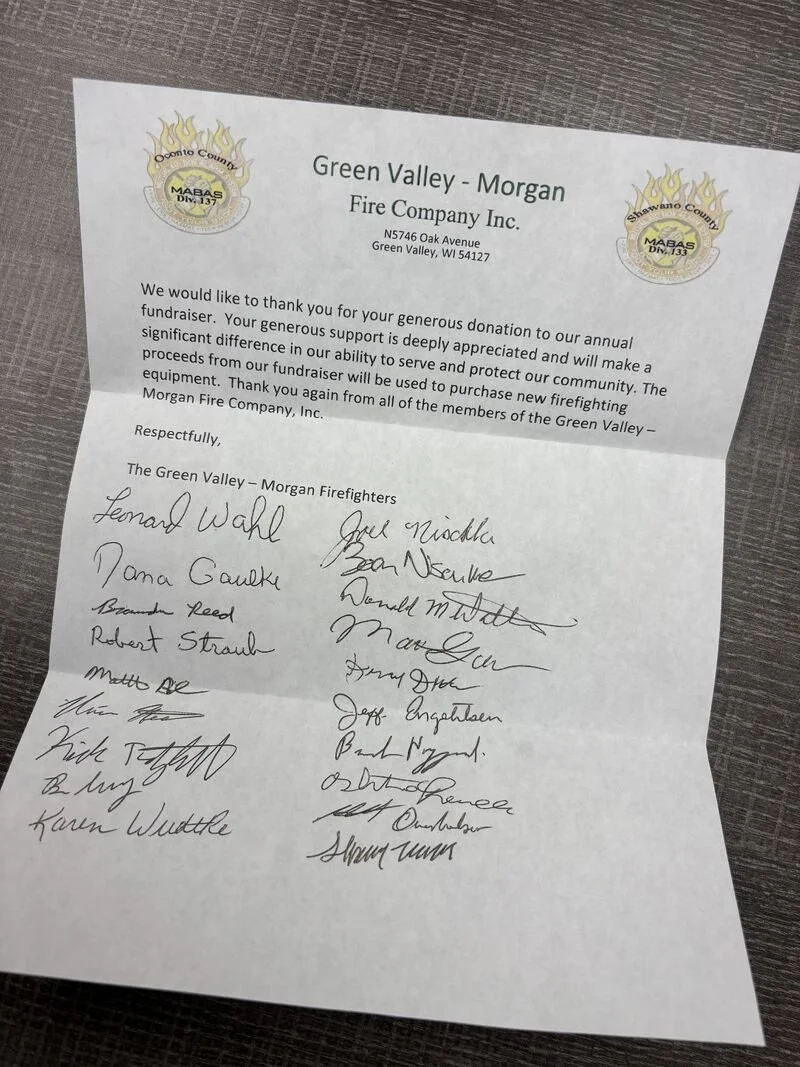 Oconto County
MABAS
Div. 137
Green Valley - Morgan
Fire Company Inc.
N5746 Oak Avenue
Green Valley, WI 54127
Shawano County
MABAS
Div. 133
We would like to thank you for your generous donation to our annual
fundraiser. Your generous support is deeply appreciated and will make a
significant difference in our ability to serve and protect our community. The
proceeds from our fundraiser will be used to purchase new firefighting
equipment. Thank you again from all of the members of the Green Valley –
Morgan Fire Company, Inc.
Respectfully,
The Green Valley – Morgan Firefighters
Leonard Wahl
Dana Gaulke
Brandon Reed
Robert Straub
Matt
Karen Wudtke
Joel Nischke
Donald
Jeff